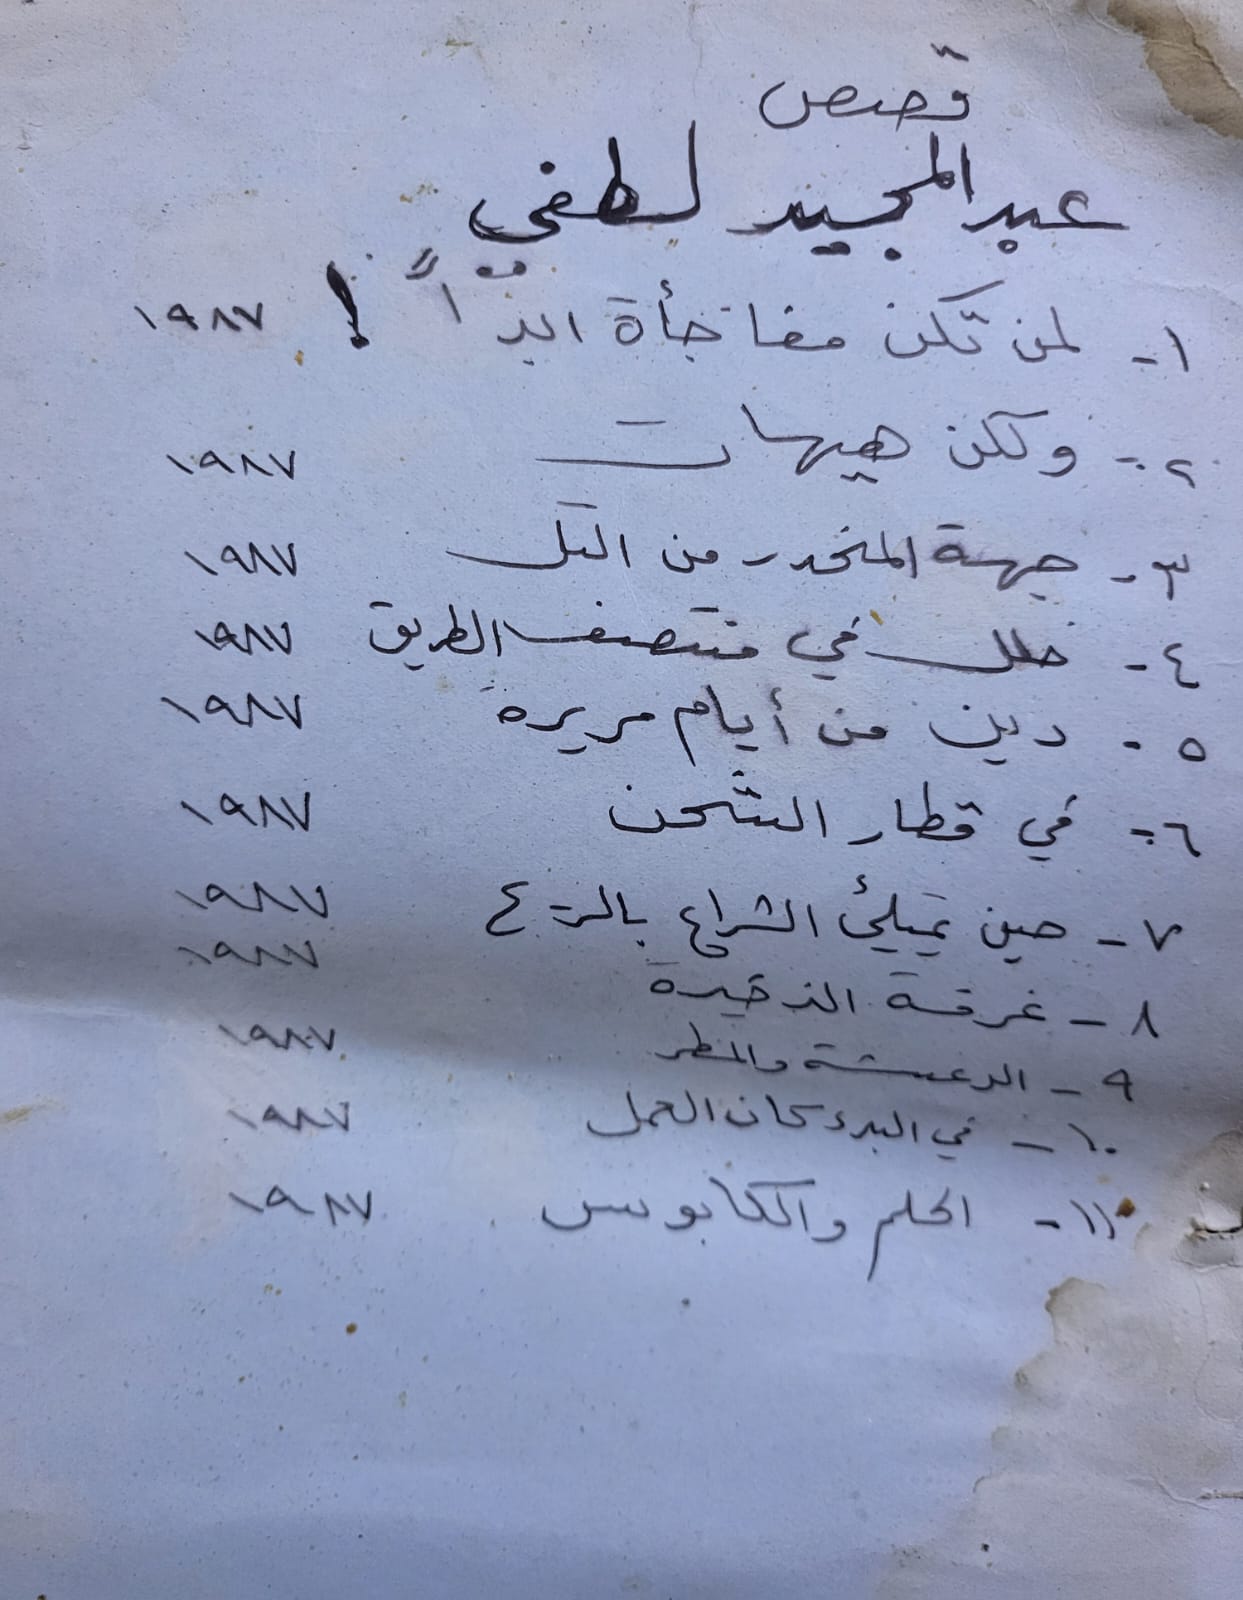 قصص
عبد المجيد لطفي
١- لمن تكن مفاجأة ابداً ! ١٩٨٧
٢- ولكن هيهات ١٩٨٧
٣- جهة المنحدر من التل ١٩٨٧
٤- خلل في منتصف الطريق ١٩٨٧
٥- دين من أيام مريرة ١٩٨٧
٦- في قطار الشحن ١٩٨٧
٧- حين يمتلئ الشراع بالريح ١٩٨٧
٨- غرفة الذخيرة ١٩٨٧
٩- الرعشة والمطر ١٩٨٧
١٠- في البدء كان العمل ١٩٨٧
١١- الحلم والكابوس ١٩٨٧